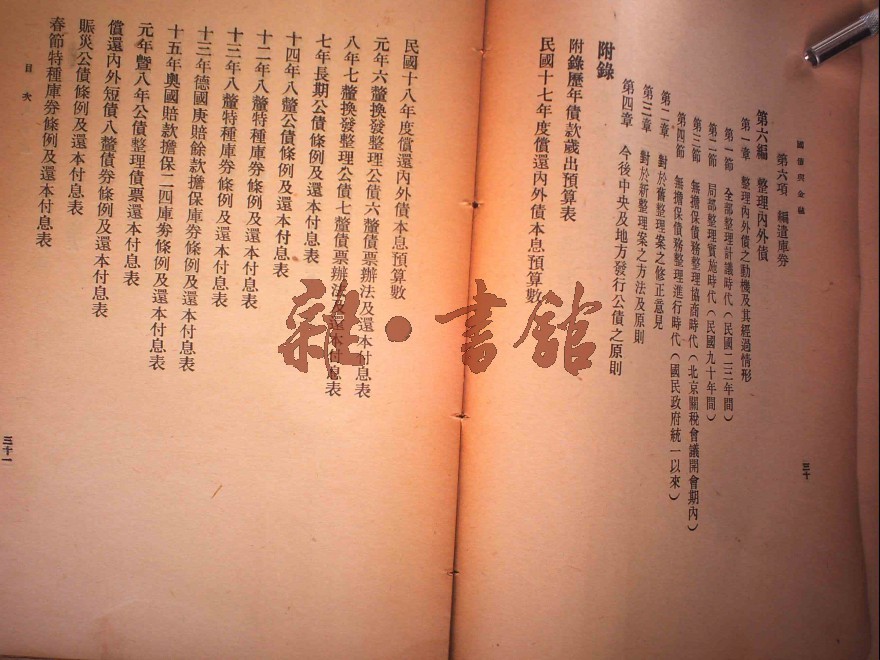 國債與金融
三十
第六項　編遣庫券
第六編　整理內外債
第一章　整理內外債之動機及其經過情形
第一節　全部整理計議時代（民國二三年間）
第二節　局部整理實施時代（民國九十年間）
第三節　無擔保債務整理協商時代（北京關稅會議開會期內）
第四節　無擔保債務整理進行時代（國民政府統一以來）
第二章　對於舊整理案之修正意見
第三章　對於新整理案之方法及原則
第四章　今後中央及地方發行公債之原則
附錄
附錄歷年債款歲出預算表
民國十七年度償還內外債本息預算數
民國十八年度償還內外債本息預算數
元年六釐換發整理公債六釐債票辦法及還本付息表
八年七釐換發整理公債七釐債票辦法及還本付息表
七年長期公債條例及還本付息表
十四年八釐公債條例及還本付息表
十二年八釐特種庫券條例及還本付息表
十三年八釐特種庫券條例及還本付息表
十三年德國庚賠餘款擔保庫券條例及還本付息表
十五年奧國賠款擔保二四庫券條例及還本付息表
元年暨八年公債整理債票還本付息表
償還內外短債八釐債券條例及還本付息表
賑災公債條例及還本付息表
春節特種庫券條例及還本付息表
目次
三十一
雜·書館